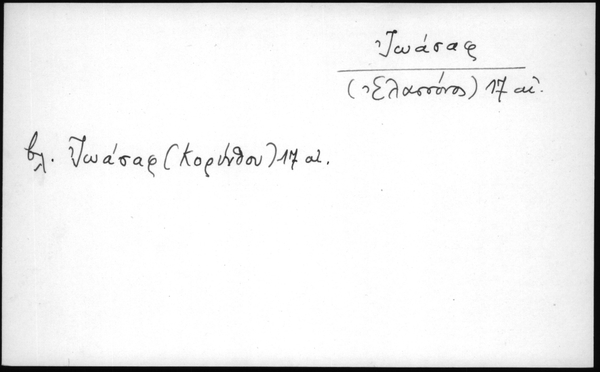 Ἰωάσαφ
(Ἐλασσόνος) 17 αἰ.
βλ. Ἰωάσαφ (Κορίνθου) 17 αἰ.